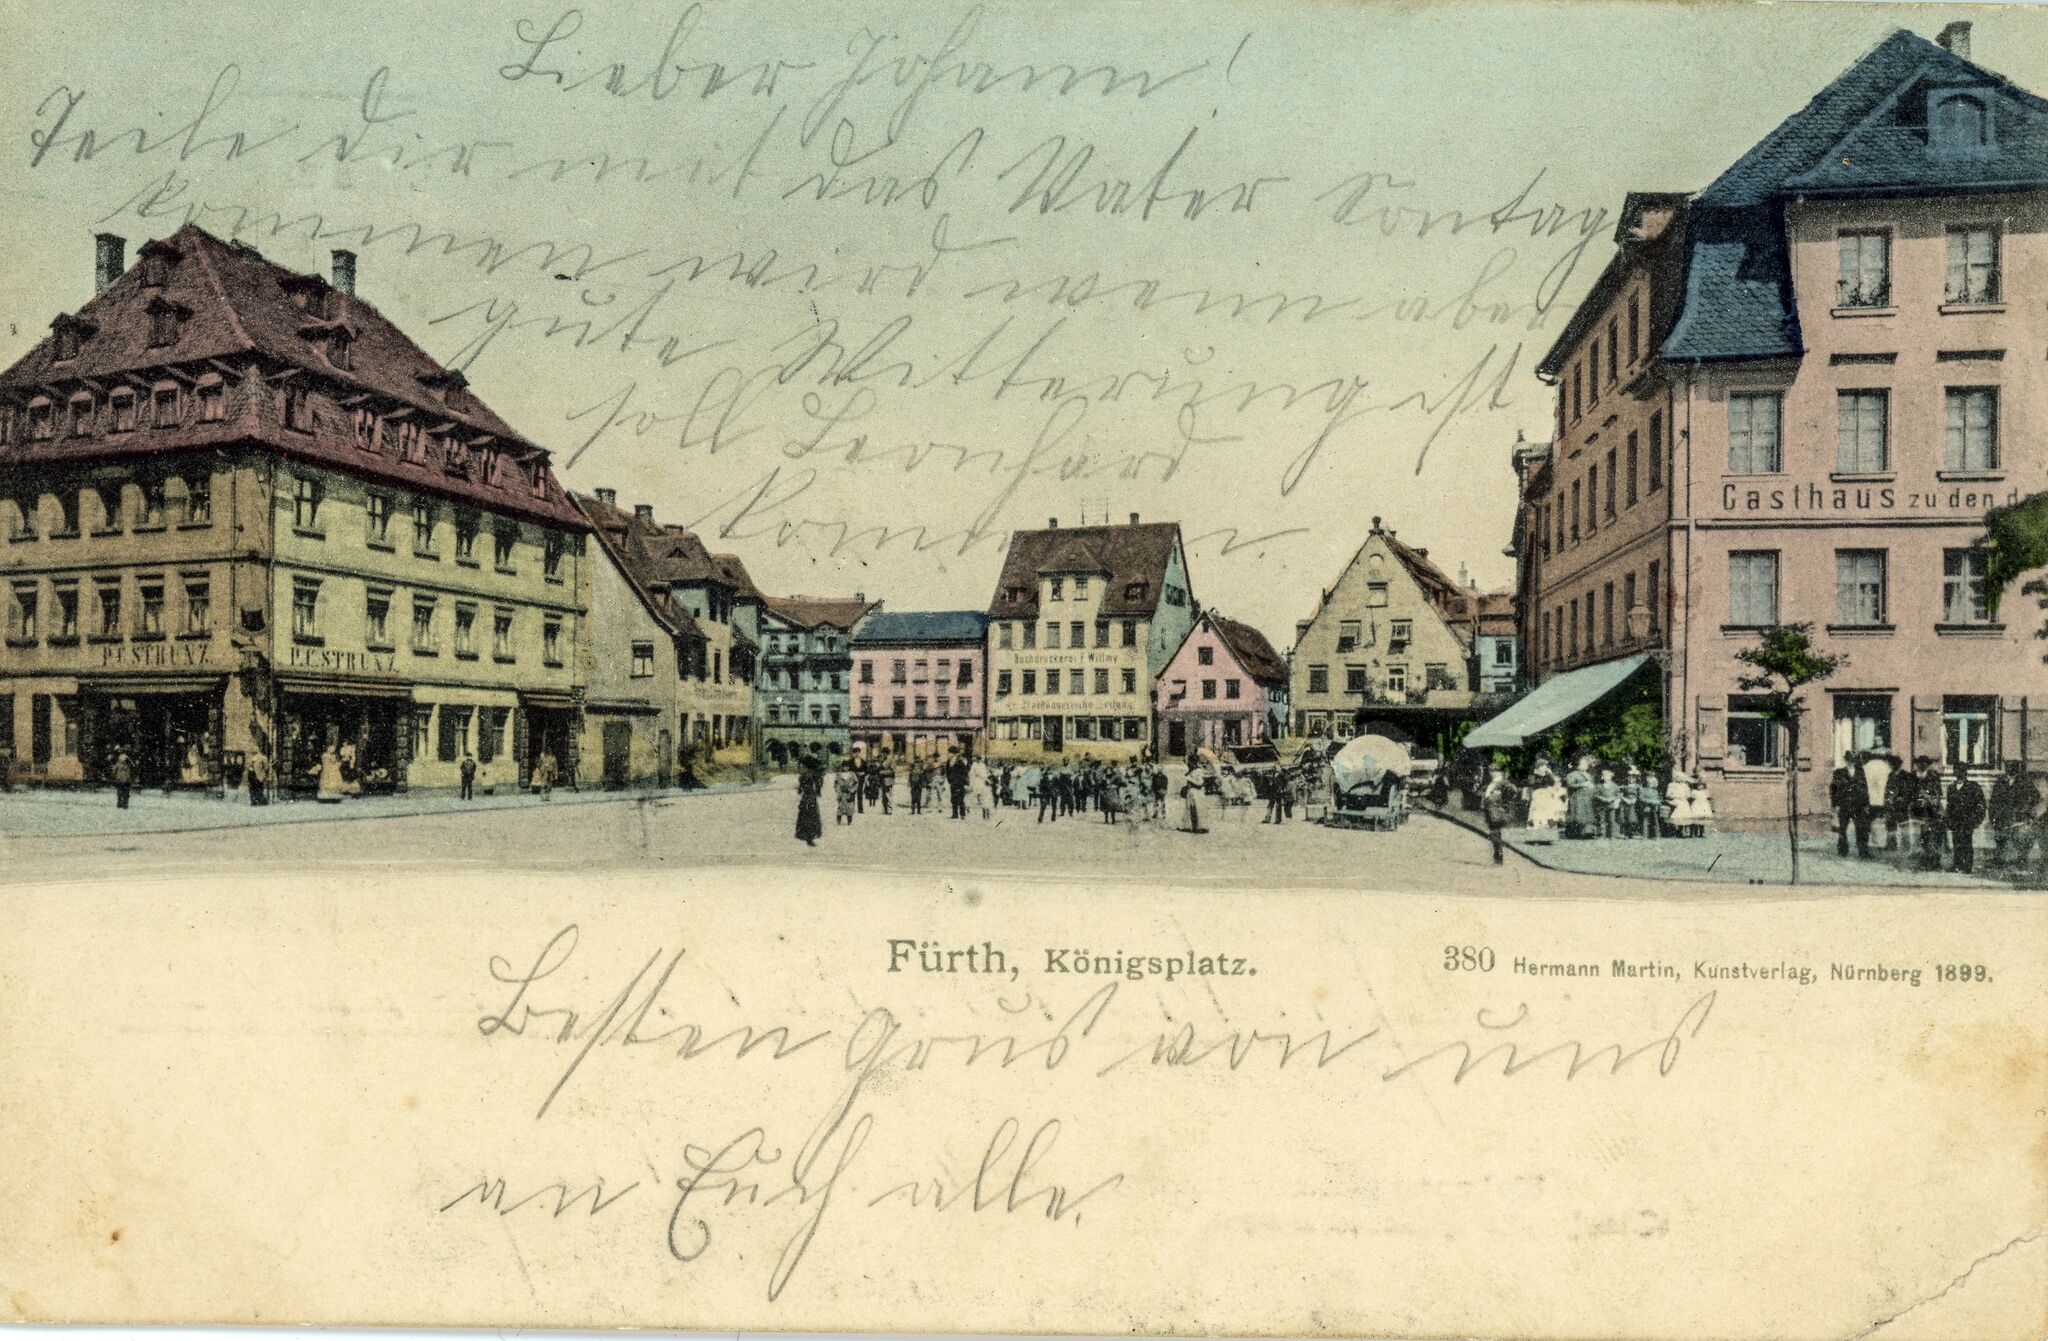 Lieber Johann!
Teile dir mit das Vater Sontag
kommen wird wenn aber
gute Witterung ist
soll Leonhard
kommen
P. C. STRUNZ.
P. C. STRUNZ.
Buchdruckerei F. Willmy
Gasthaus zu den
Fürth, Königsplatz.
380 Hermann Martin, Kunstverlag, Nürnberg 1899.
Besten Grus von uns
an Euch alle.